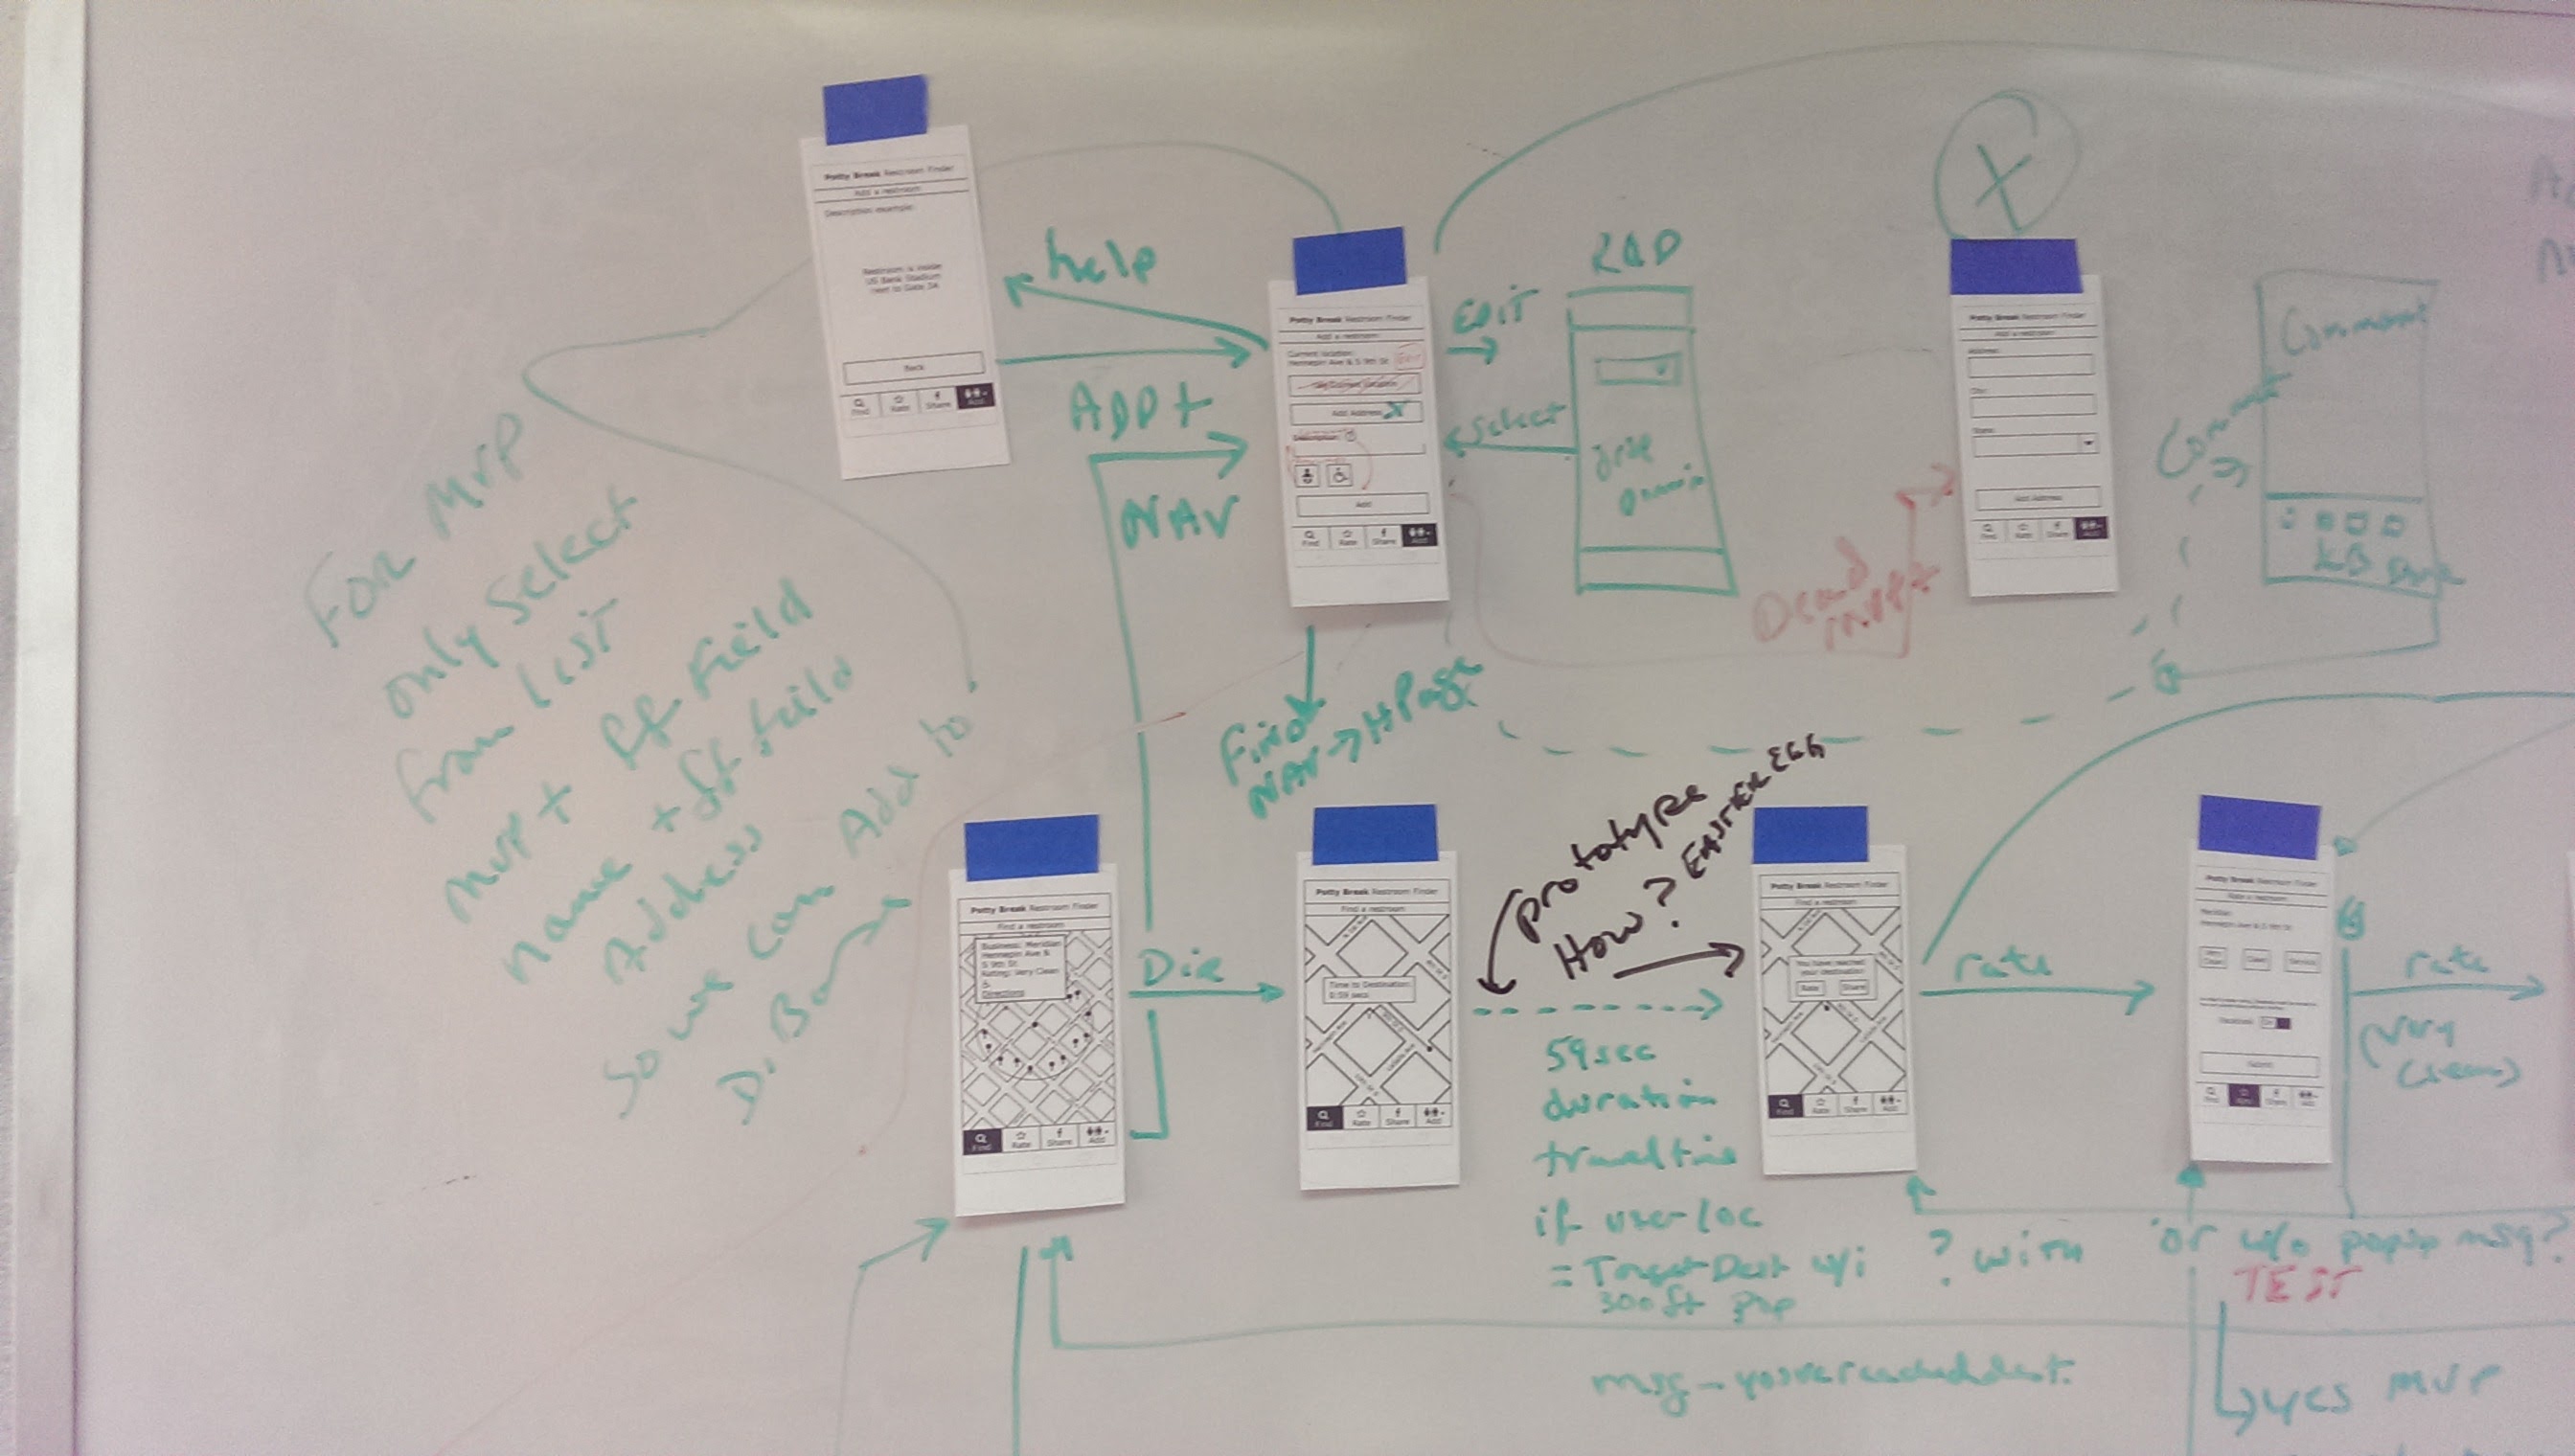 Potty Break Restroom Finder
Add a restroom
Description example:
Restroom is inside
US Bank Stadium
next to Gate 3A
Back
Find Rate Share Add
help
ADD +
NAV
Potty Break Restroom Finder
Add a restroom
Current location:
Hennepin Ave & S 9th St
EDIT
Add Address X
Description
Add
Find Rate Share Add
EDIT
select
X
Potty Break Restroom Finder
Add a restroom
Address
City
State
Add Address
Find Rate Share Add
Comment
Comment
FOR MVP
only select
from list
MVP +
field
name +
field
Address
So we can Add to
D. Base
Find
NAV → H Page
Potty Break Restroom Finder
Find a restroom
Business: Meridian
Hennepin Ave &
S 9th St
Rating: Very Clean
Directions
Find Rate Share Add
Dir
Potty Break Restroom Finder
Find a restroom
Time to Destination:
0:59 secs
Find Rate Share Add
prototype
How?
EASTER EGG
59 sec
duration
travel time
if user loc
= Target Dest w/i
300 ft pop
Potty Break Restroom Finder
Find a restroom
You have reached
your destination
Rate Share
Find Rate Share Add
rate
Potty Break Restroom Finder
Rate a restroom
Meridian
Hennepin Ave & S 9th St
Submit
Find Rate Share Add
rate
(Very
Clean)
? with or w/o popup msg?
TEST
yes MVP